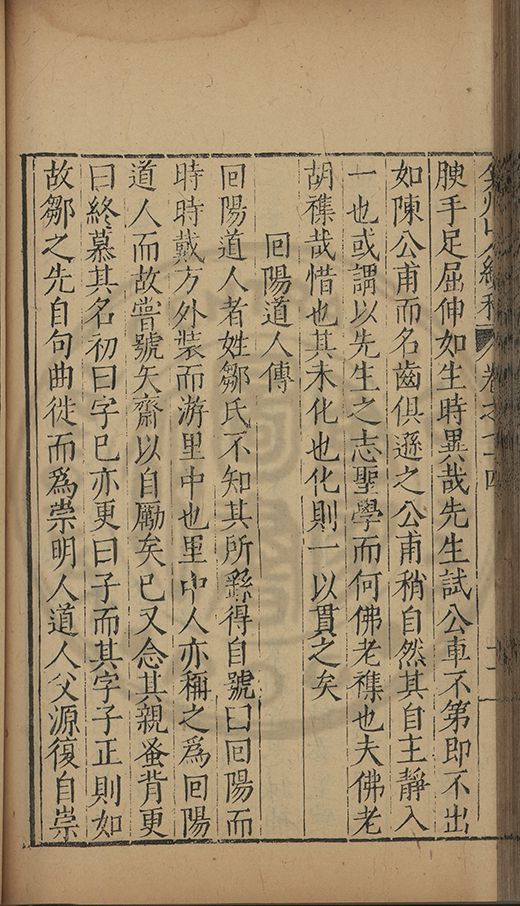 腴手足屈伸如生時異哉先生試公車不第即不出
如陳公甫而名齒俱遜之公甫稍自然其自主靜入
一也或謂以先生之志聖學而何佛老襍也夫佛老
胡襍哉惜也其未化也化則一以貫之矣
回陽道人傳
回陽道人者姓鄒氏不知其所繇得自號曰回陽而
時時戴方外裝而游里中也里中人亦稱之為回陽
道人而故嘗號矢齋以自勵矣已又念其親蚤背更
曰終慕其名初曰字已亦更曰子而其字子正則如
故鄒之先自句曲徙而為崇明人道人父源復自崇